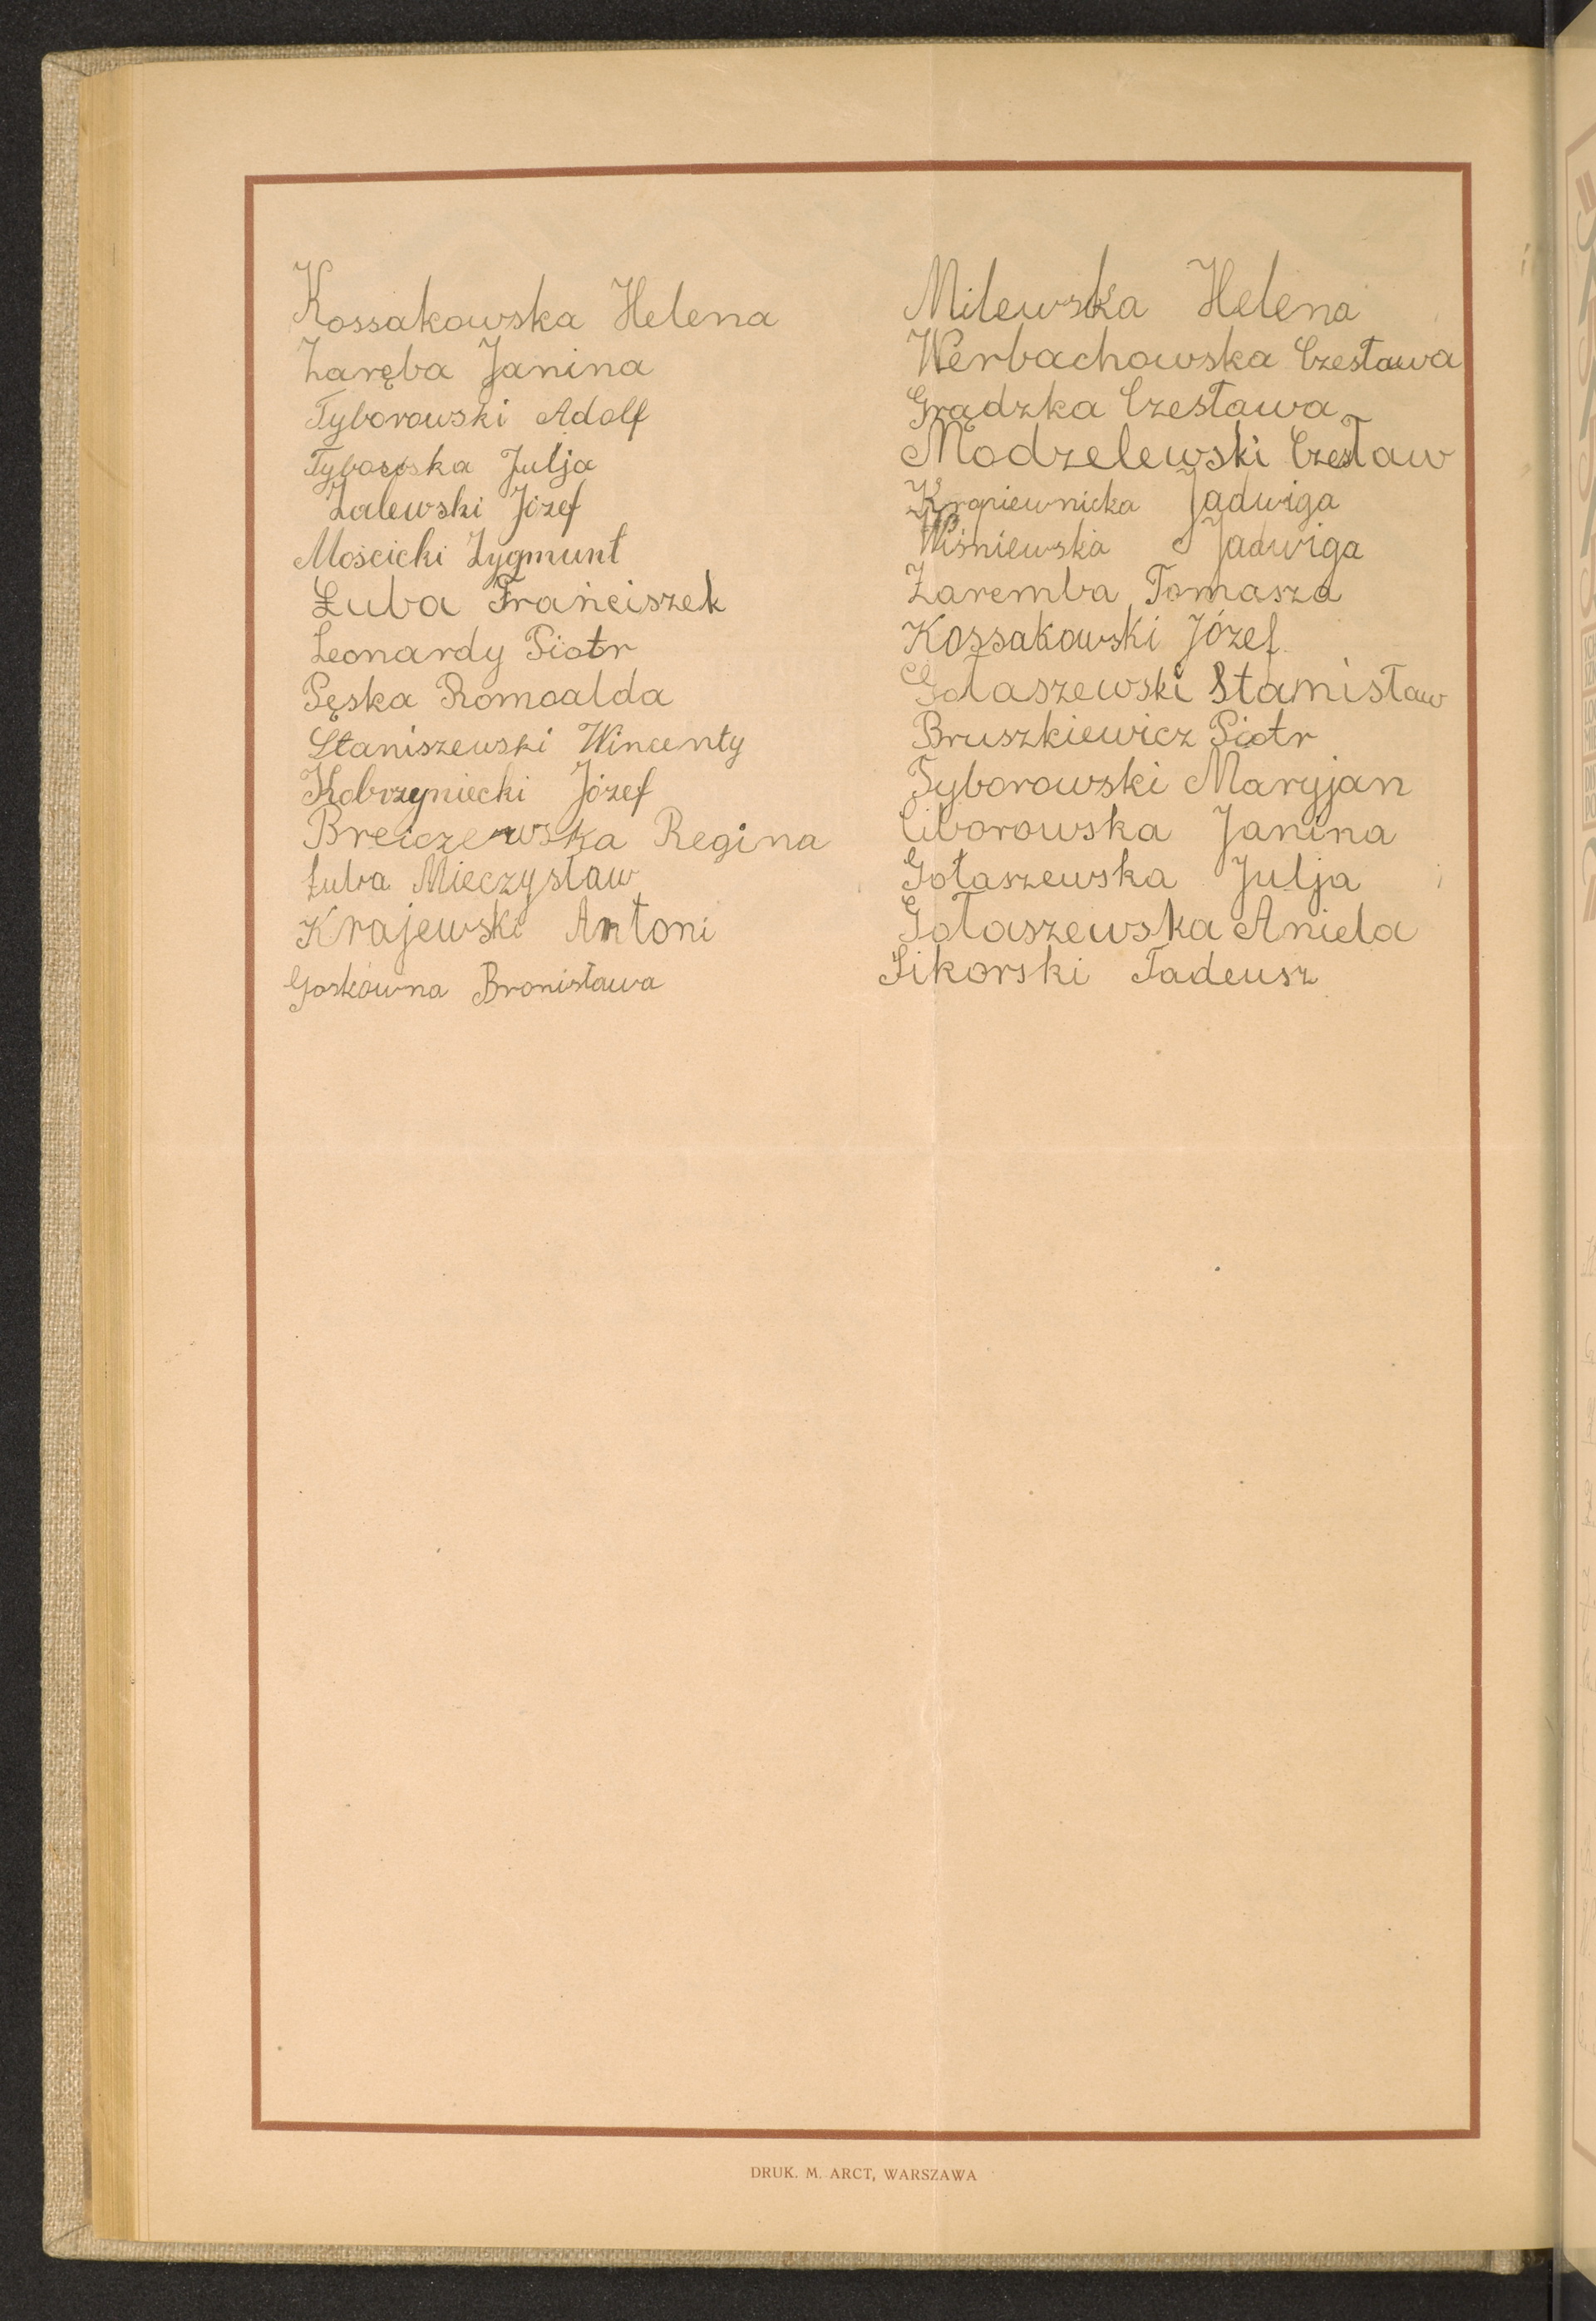 Kossakowska Helena
Zaręba Janina
Tyborowski Adolf
Julja
Zalewski Józef
Mościcki Zygmunt
Łuba Franciszek
Leonardy Piotr
Pęska Romoalda
Staniszewski Wincenty
Kobrzyniecki Józef
Breiczewska Regina
Łuba Mieczysław
Krajewski Antoni
Goskówna Bronisława
Milewska Helena
Werbachowska Czesława
Grądzka Czesława
Modzelewski Czesław
Krapiewnicka Jadwiga
Wiśniewska Jadwiga
Zaremba Tomasza
Kossakowski Józef
Gołaszewski Stanisław
Bruszkiewicz Piotr
Tyborowski Maryjan
Ciborowska Janina
Gołaszewska Julja
Gołaszewska Aniela
Sikorski Tadeusz
DRUK. M. ARCT, WARSZAWA